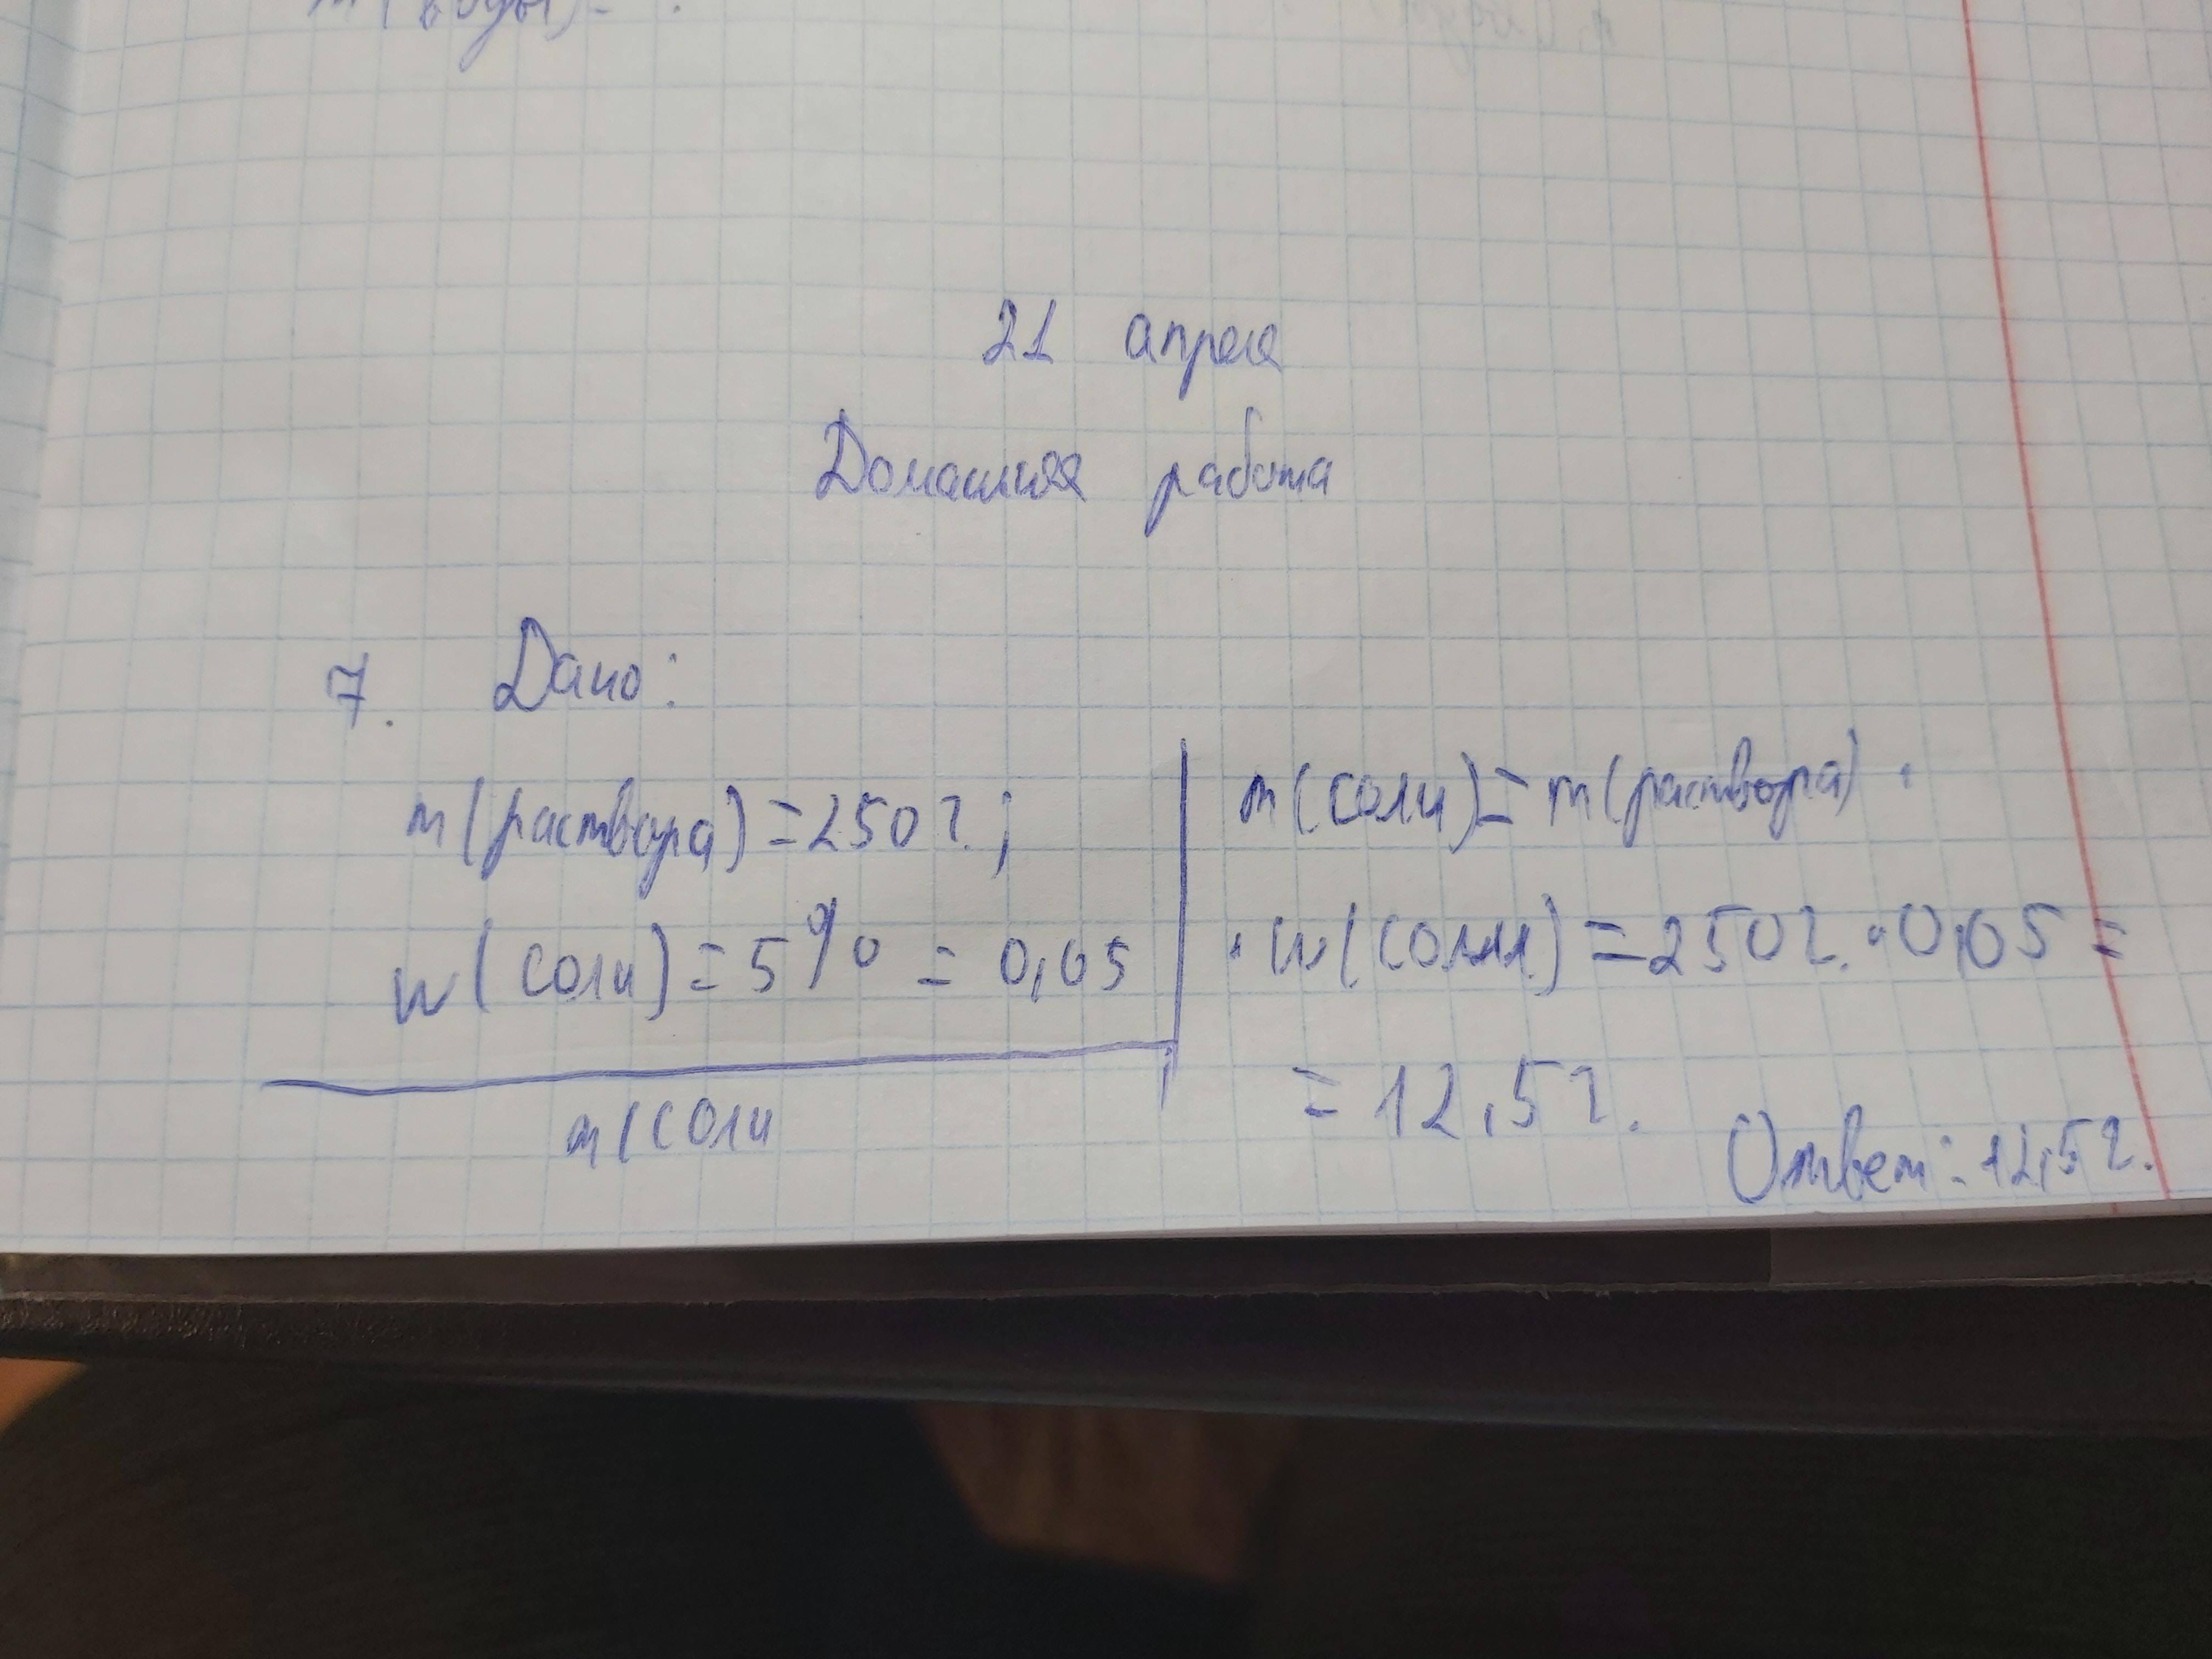 m(воды)= ?
21 апреля
Домашняя работа
7. Дано:
m(раствора)=250г.;
w(соли)=5%=0,05
m(соли
m(соли)=m(раствора)·
·w(соли)=250г.·0,05=
=12,5г.
Ответ:12,5г.